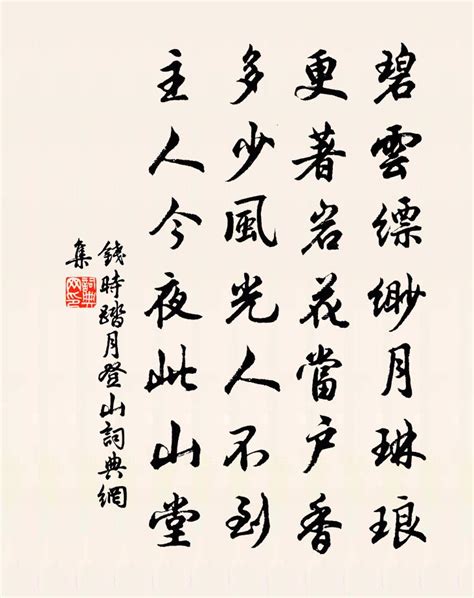 碧雲缥缈月琳琅
更著岩花當户香
多少風光人不到
主人今夜此山堂
錢時踏月登山詞典網
集